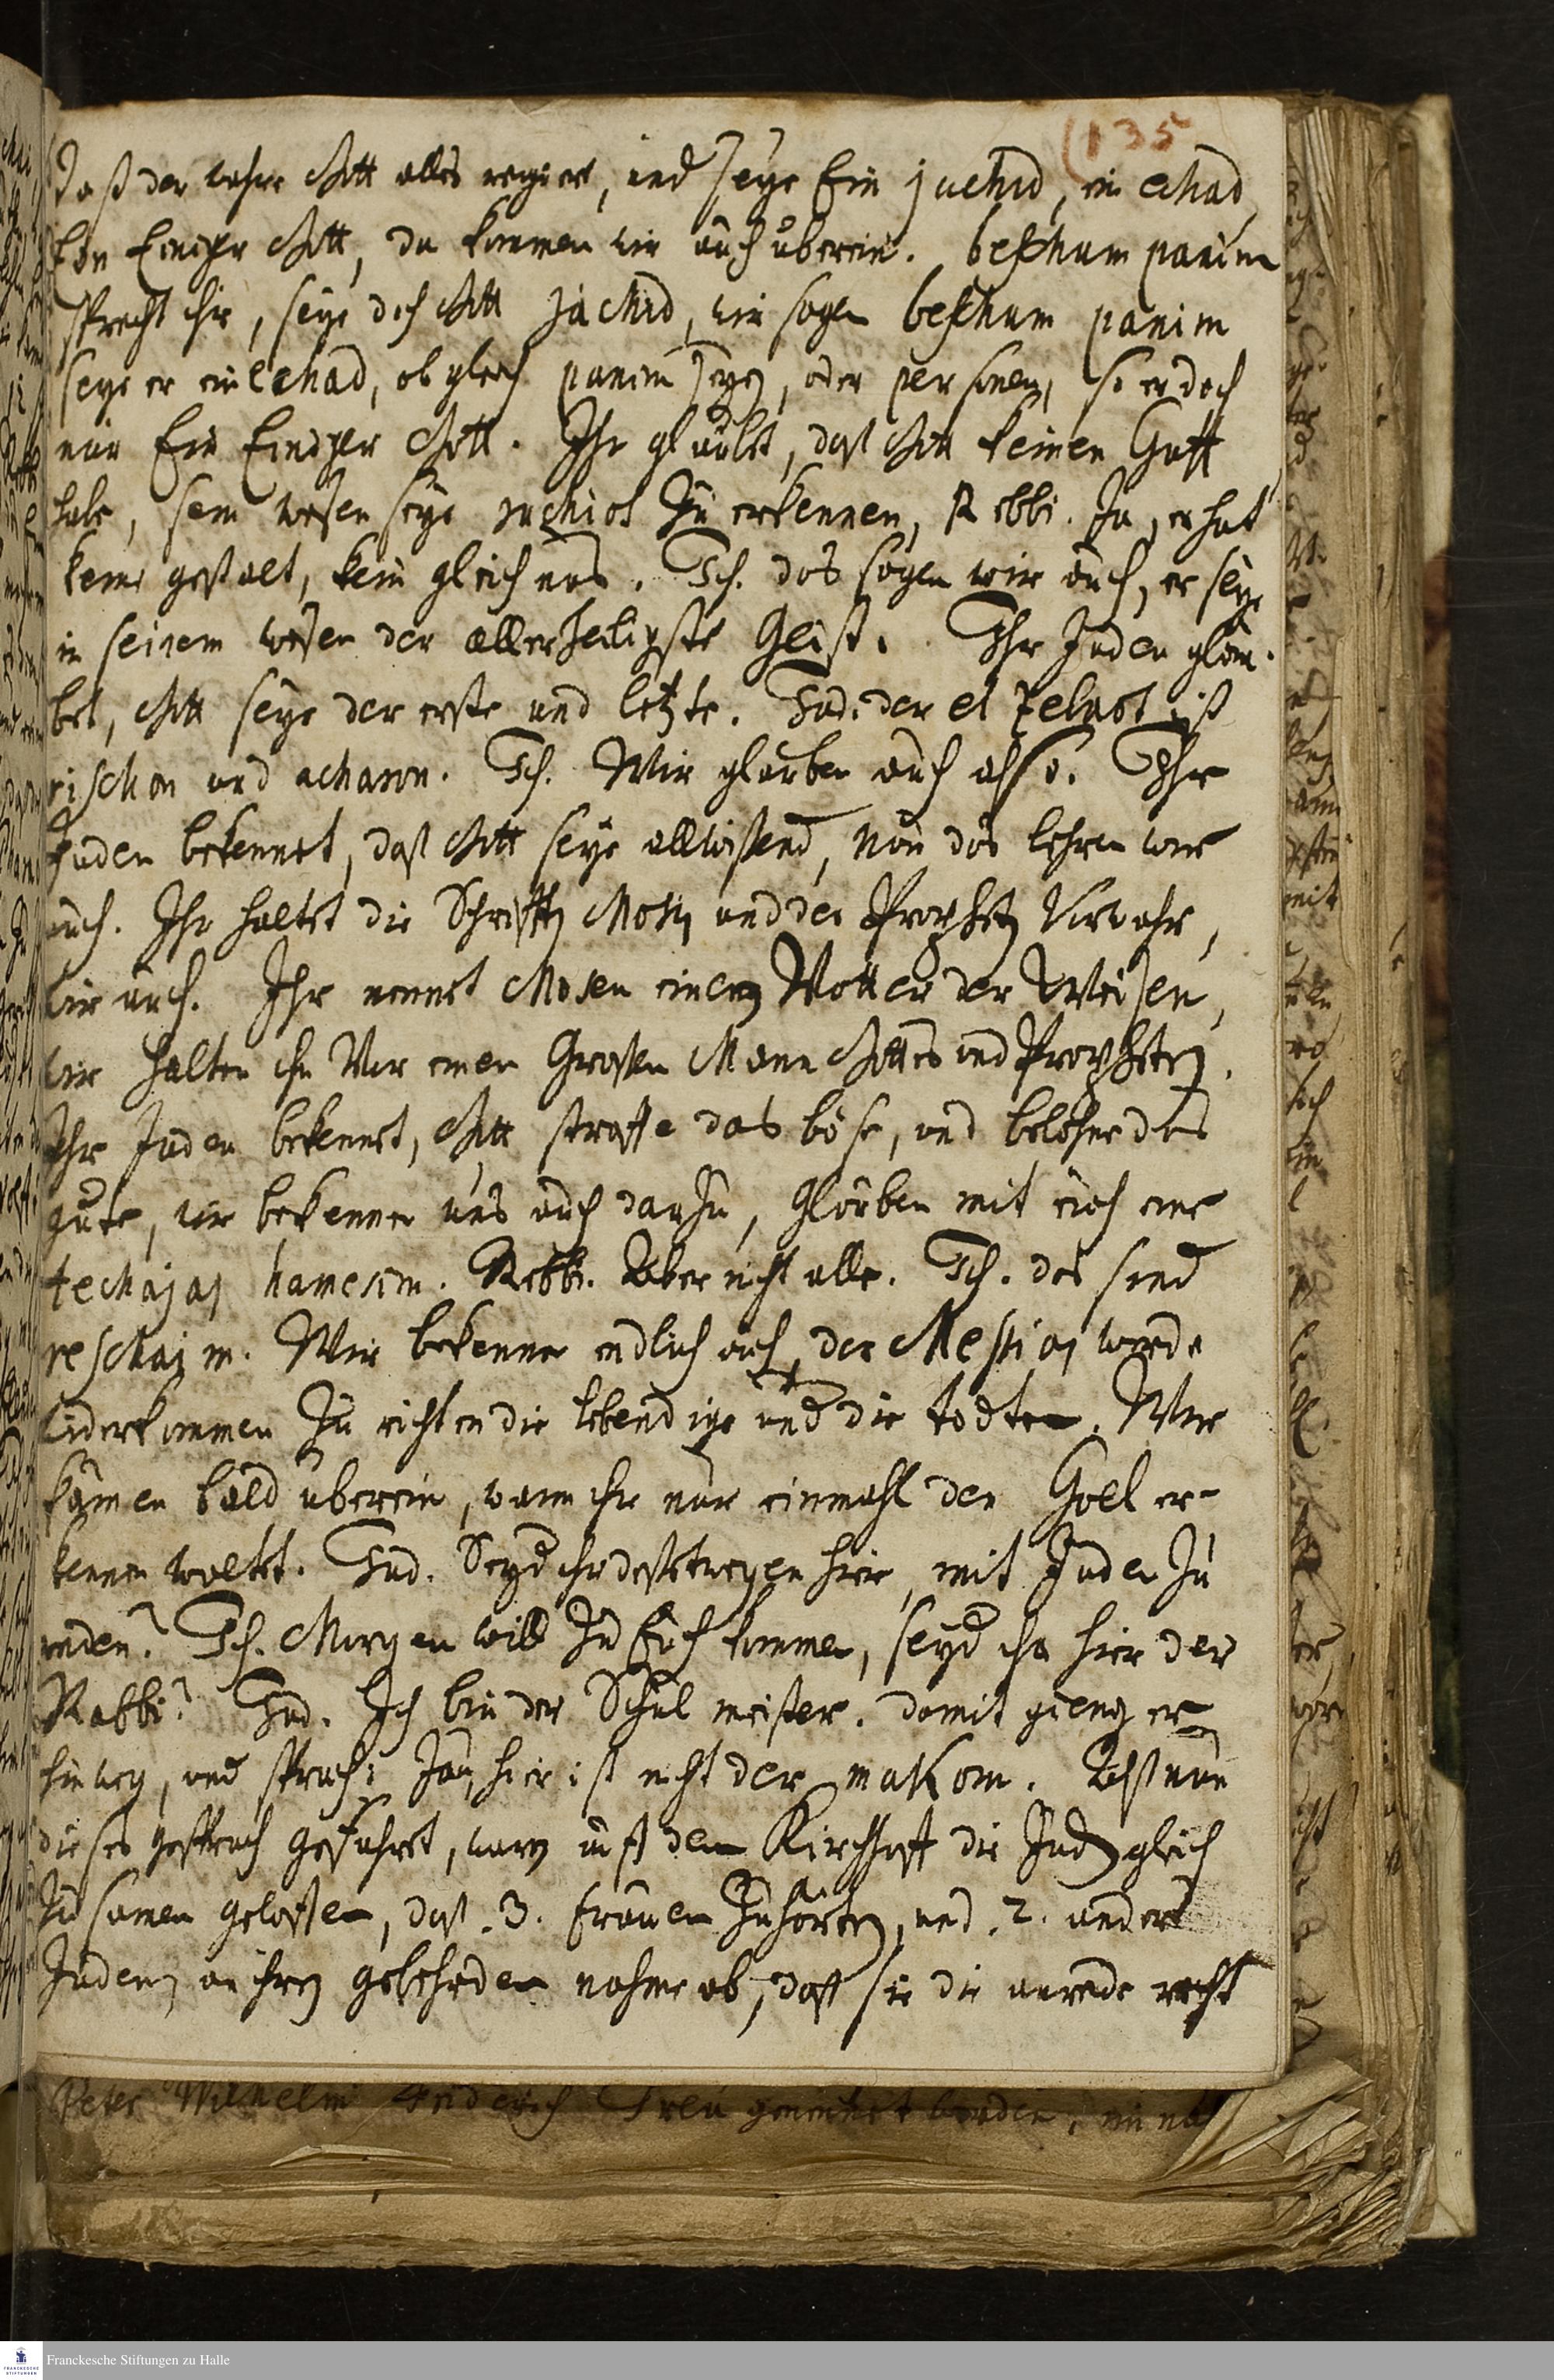 (135
daß der wahre Gott alles regiert, und seye Ein jachid, ein echad,
Ein Einiger Gott, da kommen wir auch überein. beschum panim
sprecht ihr, seye doch Gott jachid, wir sagen beschum panim
seye er ein echad, ob gleich panim seyen, oder personen, so er doch
nur Ein Einiger Gott. Ihr glaubt, daß Gott keinen Guff
habe, sein wesen seye zu erkennen, Rebbi. Ja, er hat
keine gestalt, kein gleichnus. Ich. das sagen wir auch, er seye
in seinem wesen der allerheiligste Geist. Ihr Juden glau-
bet, Gott seye der erste und letzte. Jud. der el Zebaot ist
rischon und acharon. Ich. Wir glauben auch also. Ihr
Juden bekennet, daß Gott seye allwißend, nun das lehren wir
auch. Ihr haltet die Schrifften Mosis und der Propheten vor wahr,
wir auch. Ihr nennet Mosen einen Vatter der Weisen,
wir halten ihn vor einen Großen Mann Gottes und Propheten.
Ihr Juden bekennet, Gott straffe das böse, und belohne das
gute, wir bekennen uns auch darzu, glauben mit euch eine
techajas hamesim. Rebbi. Aber nicht alle. Ich. das sind
reschaim. Wir bekennen endlich auch, der Messias werde
widerkommen zu richten die lebendige und die todten. Wir
kämen bald überein, wann ihr nur einmahl den Goel er-
kennen woltet. Jud. Seyd ihr deßetwegen hier, mit Juden zu
reden? Ich. Morgen will zu Euch kommen, seyd ihr hier der
Rabbi? Jud. Ich bin der Schulmeister. damit gieng er
hinweg, und sprach: hier ist nicht der makom. Als nun
dieses gespräch geführet, waren auß dem Kirchhoff die Juden gleich
zusamen geloffen, daß 3. frauen zuhörten, und 2. andere
Juden, an ihren gebehrden nahme ab, daß sie die anrede recht
Peter Wilhelm Friderich Treu genennet worden,
Franckesche Stiftungen zu Halle